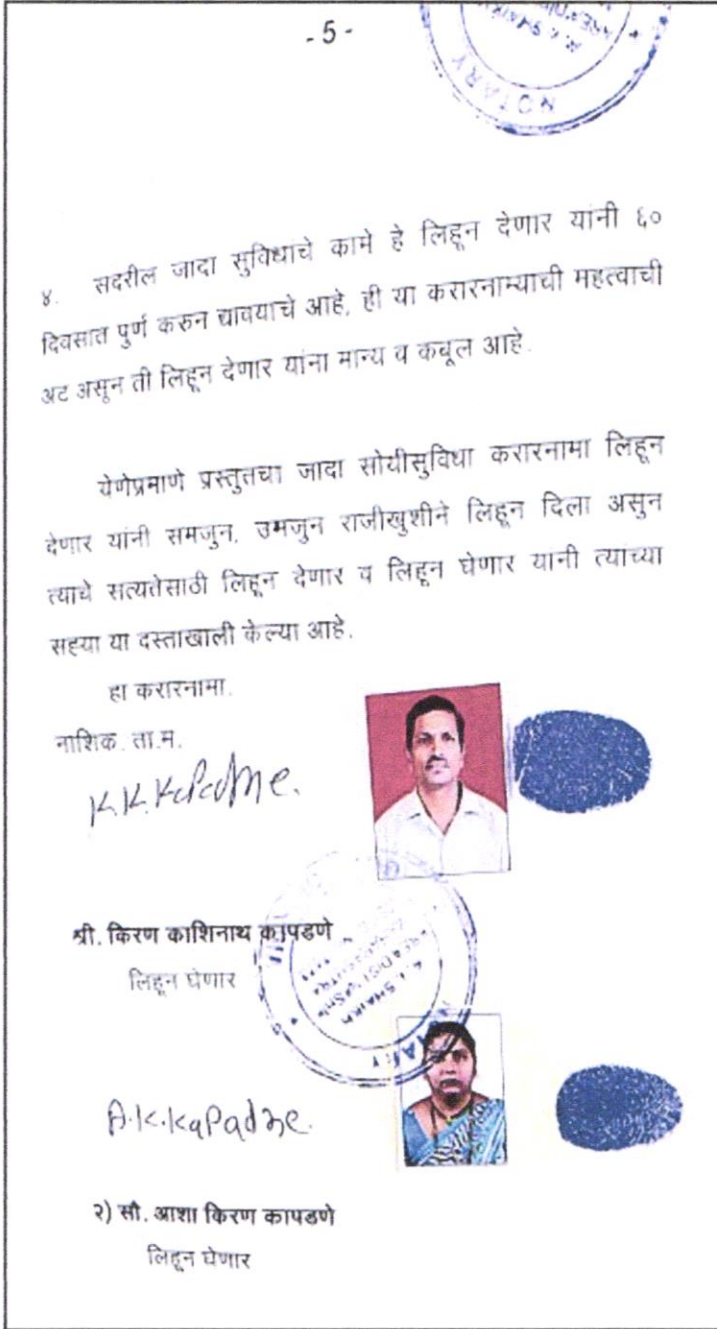 - 5 -
NOTARY
४. सदरील जादा सुविधाचे कामे हे लिहून देणार यांनी ६०
दिवसात पुर्ण करुन द्यावयाचे आहे, ही या करारनाम्याची महत्वाची
अट असून ती लिहून देणार यांना मान्य व कबूल आहे.
येणेप्रमाणे प्रस्तुतचा जादा सोयीसुविधा करारनामा लिहून
देणार यांनी समजुन, उमजुन राजीखुशीने लिहून दिला असुन
त्याचे सत्यतेसाठी लिहून देणार व लिहून घेणार यानी त्यांच्या
सह्या या दस्ताखाली केल्या आहे.
हा करारनामा.
नाशिक. ता.म.
K.K.Kapadne.
श्री. किरण काशिनाथ कापडणे
लिहून घेणार
A.K.Kapadne.
२) सौ. आशा किरण कापडणे
लिहून घेणार